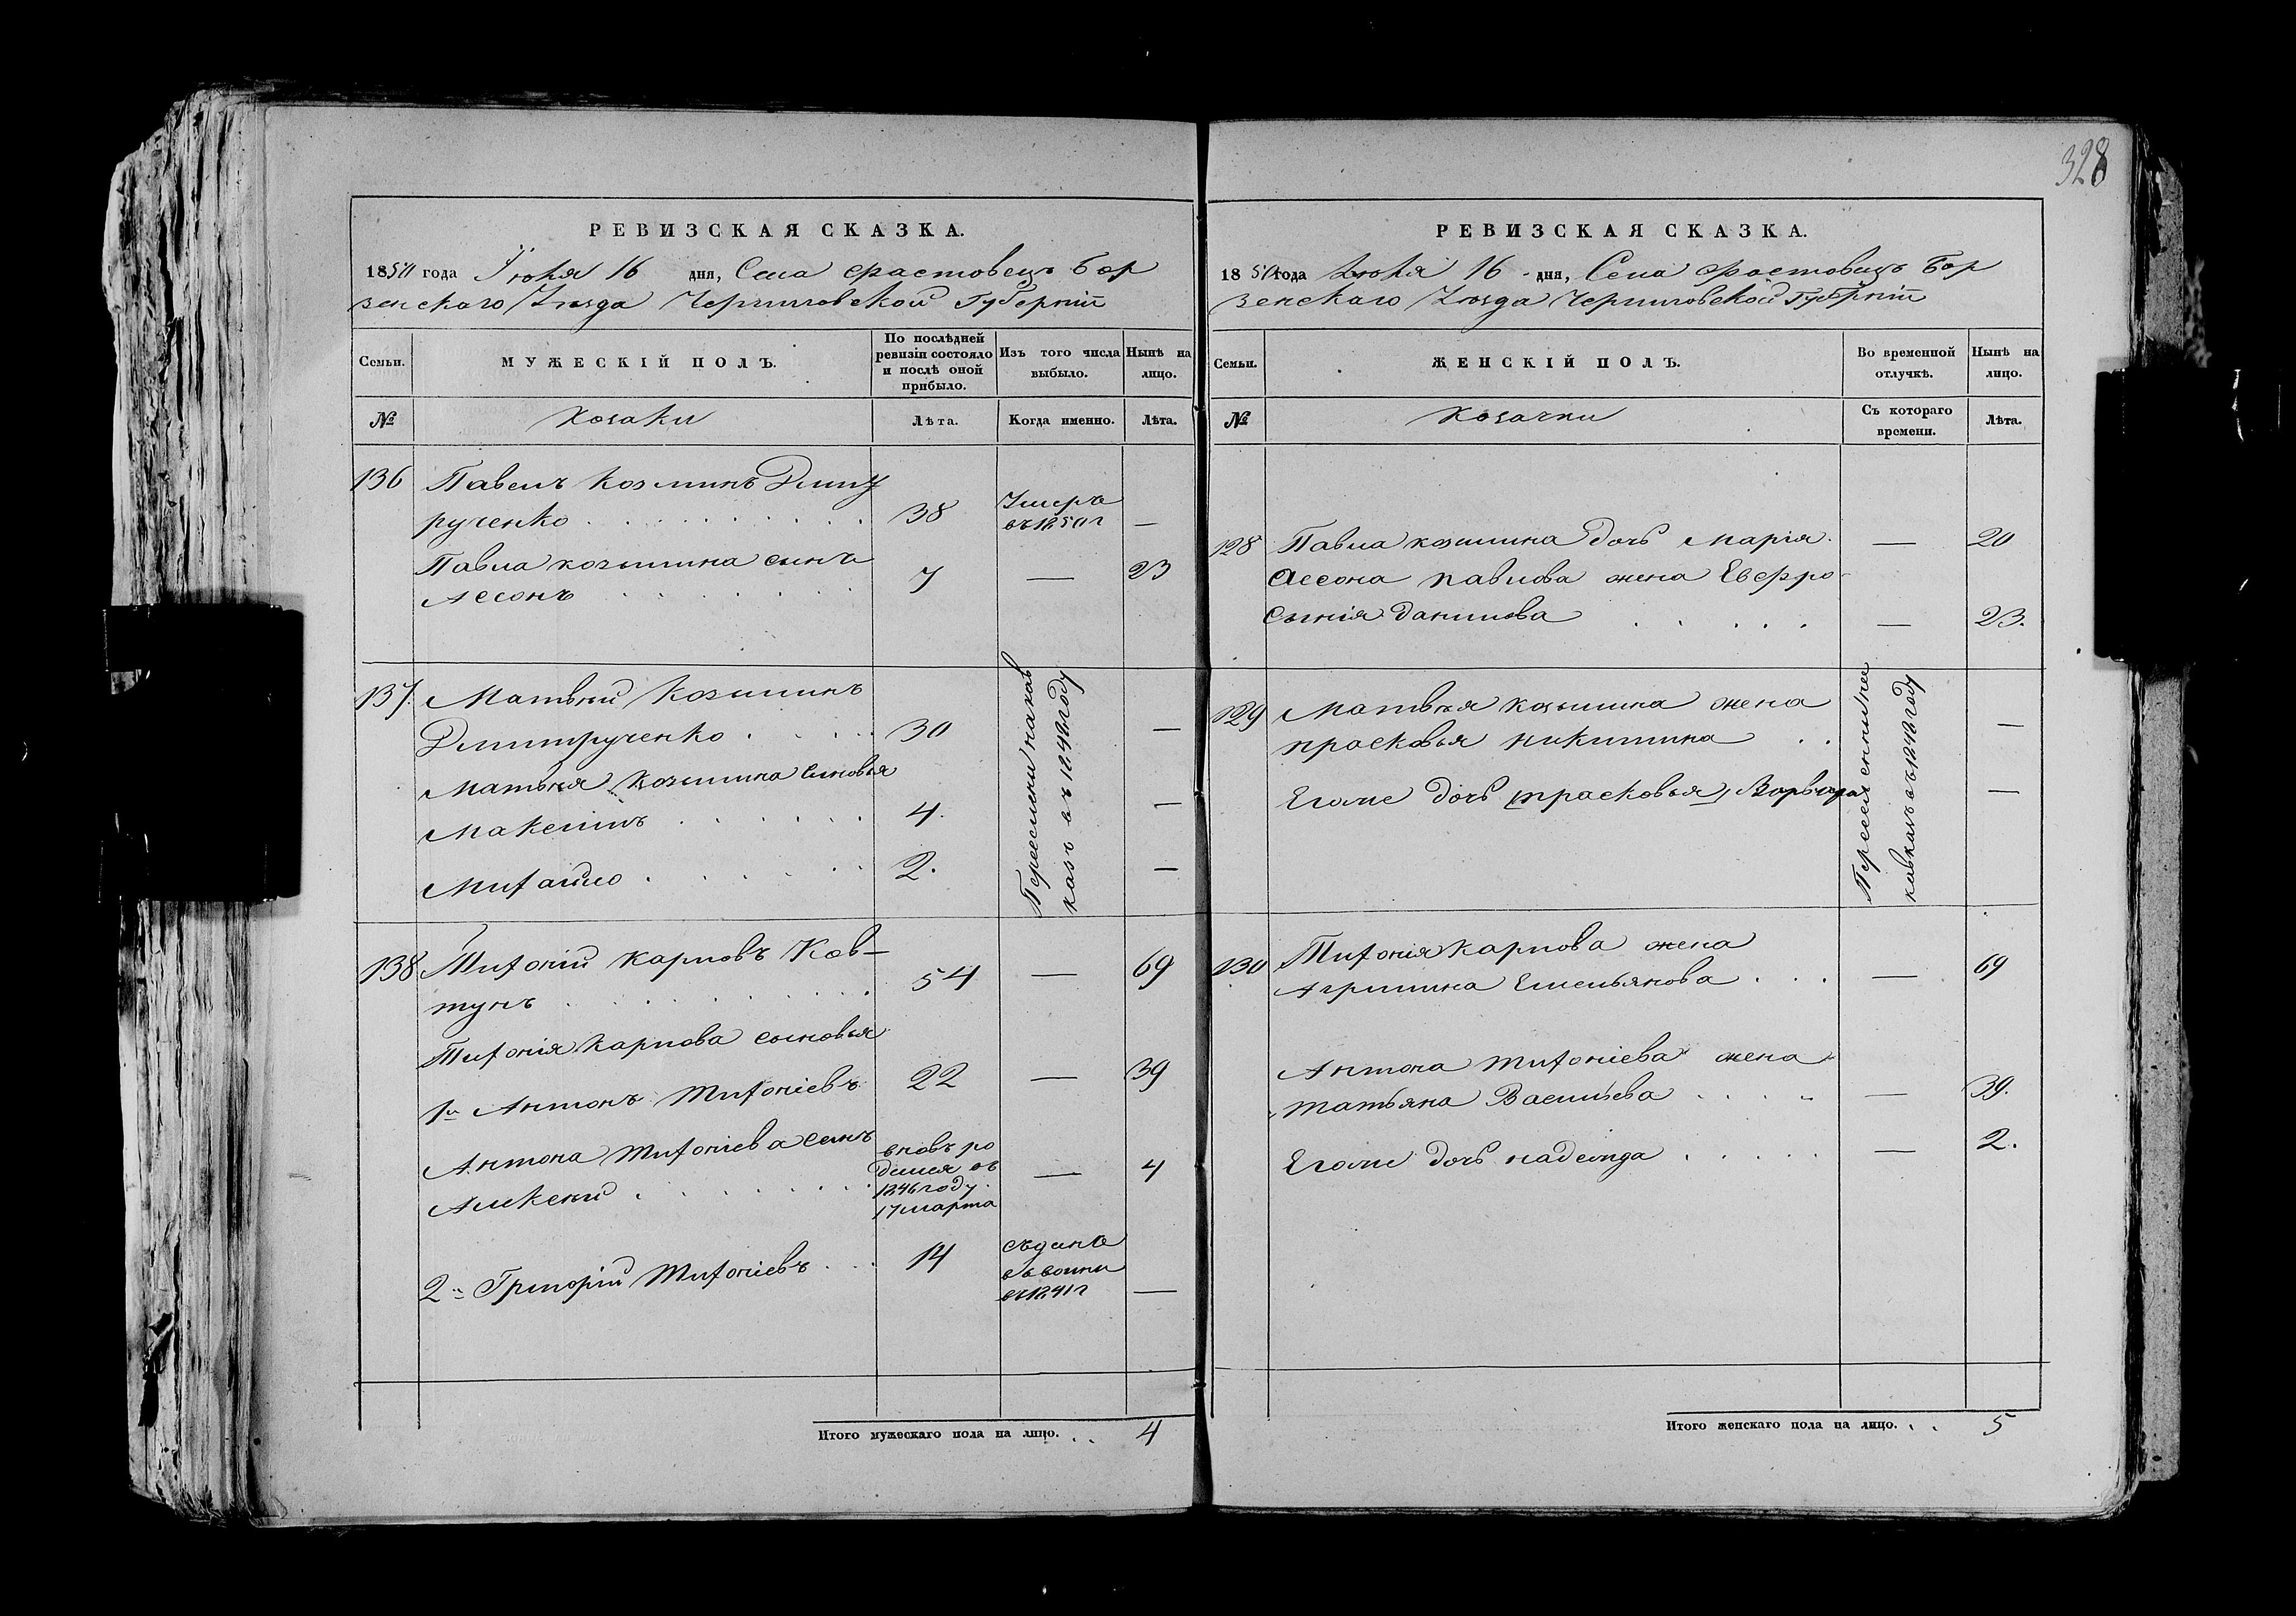 328
РЕВИЗСКАЯ СКАЗКА.
1850 года Іюля 16 дня, Села Фастовецъ Бор
зенскаго Уѣзда Черниговской Губерніи
Семьи.
МУЖЕСКІЙ ПОЛЪ.
По послѣдней ревизіи состояло и послѣ оной прибыло.
Изъ того числа выбыло.
Нынѣ на лицо.
№
Козаки
Лѣта.
Когда именно.
Лѣта.
136 Павелъ Козминъ Дмит
рученко 38 Умеръ въ 1850 г —
Павла козмина сынъ
Асонъ 7 — 23
137. Матвѣй Козминъ
Дмитрученко 30 —
Матвѣя Козмина синовья
Максимъ 4. —
Михайло 2. —
Переселени на кав
казъ въ 1848 году
138 Тихоній Карповъ Ков-
тунъ 54 — 69
Тихонія Карпова сыновья
1й Антонъ Тихоніевъ 22 — 39
Антона Тихоніева сынъ
Алексій вновь ро
дился въ
1846 году
17 марта — 4
2й Григорій Тихоніевъ 14 съданъ
въ воины
въ 1841 г —
Итого мужескаго пола на лицо. 4
РЕВИЗСКАЯ СКАЗКА.
1850 года Июля 16 дня, Села Фастовецъ Бор
зенскаго Уѣзда Черниговской Губерніи
Семьи.
ЖЕНСКІЙ ПОЛЪ.
Во временной отлучкѣ.
Нынѣ на лицо.
№
Козачки
Съ котораго времени.
Лѣта.
128 Павла козмина дочь Марія — 20
Асона Павлова жена Евфро
сынія Данилова — 23.
129 Матвѣя козмина жена
Прасковья Никитина —
Егоже дочь Прасковья, Варвара —
Переселенни на
кавказъ въ 1848 году
130 Тихонія Карпова жена
Агрипина Емельянова — 69
Антона Тихоніева жена
Татьяна Васильева — 39.
Егоже дочь надежда — 2.
Итого женскаго пола на лицо. 5